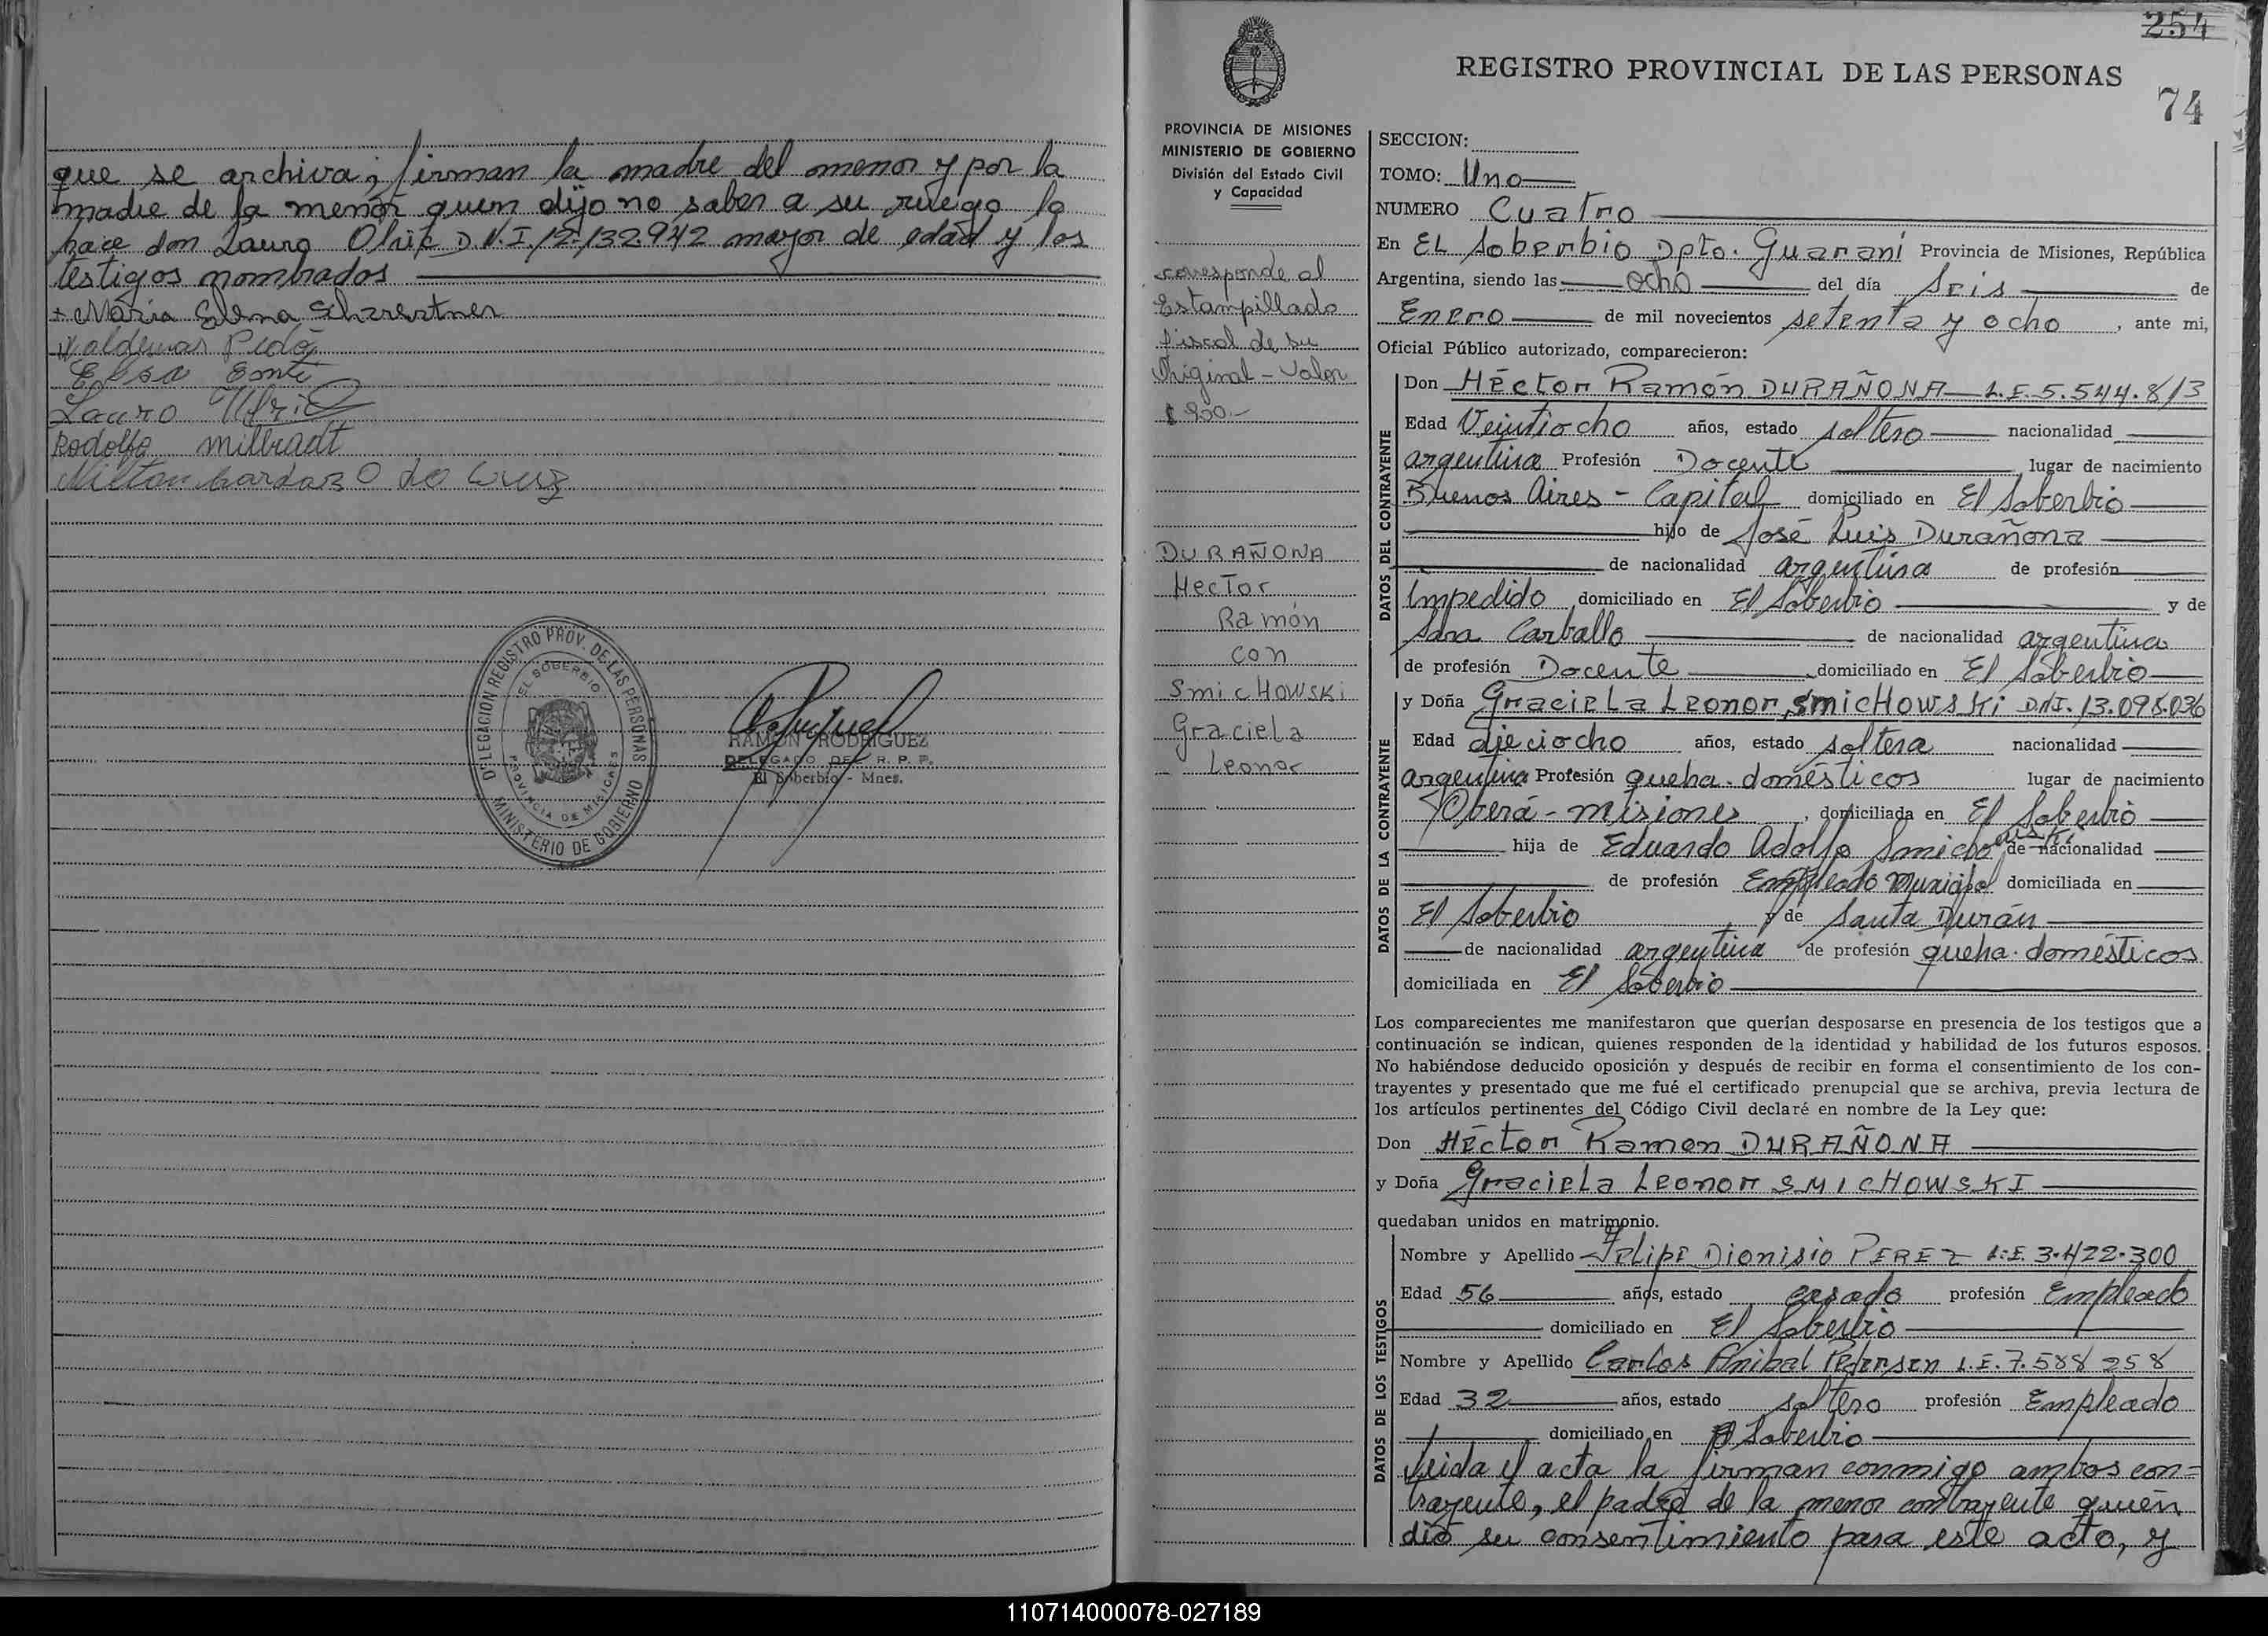 que se archiva; firman la madre del menor y por la
madre de la menor quien dijo no saber a su ruego lo
hace don Lauro Olrik D.N.I. 12.132.942 mayor de edad y los
testigos nombrados
+ Maria Elena
Waldemar
Elsa
Lauro
Rodolfo milbradt
Milton
DELEGACION REGISTRO PROV. DE LAS PERSONAS
EL SOBERBIO
PROVINCIA DE MISIONES
MINISTERIO DE GOBIERNO
RAMON RODRIGUEZ
DELEGADO DEL R. P. P.
El Soberbio - Mnes.
254
REGISTRO PROVINCIAL DE LAS PERSONAS
74
PROVINCIA DE MISIONES
MINISTERIO DE GOBIERNO
División del Estado Civil
y Capacidad
corresponde al
Estampillado
fiscal de su
Original - Valor
DURAÑONA
Hector
Ramón
con
SmicHOWSKi
Graciela
Leonor
SECCION:
TOMO: Uno
NUMERO Cuatro
En EL Soberbio Dpto. Guaraní Provincia de Misiones, República
Argentina, siendo las ocho del día Seis de
Enero de mil novecientos setenta y ocho , ante mi,
Oficial Público autorizado, comparecieron:
DATOS DEL CONTRAYENTE
Don Héctor Ramón DURAÑONA L.E. 5.544.813
Edad Veintiocho años, estado soltero nacionalidad
argentina Profesión Docente lugar de nacimiento
Buenos Aires - Capital domiciliado en El Soberbio
hijo de José Luis Durañona
de nacionalidad argentina de profesión
Impedido domiciliado en El Soberbio y de
Sara Carballo de nacionalidad argentina
de profesión Docente domiciliado en El Soberbio
DATOS DE LA CONTRAYENTE
y Doña Graciela Leonor SmicHowski D.N.I. 13.098.036
Edad dieciocho años, estado soltera nacionalidad
argentina Profesión queha. domésticos lugar de nacimiento
Oberá - misiones , domiciliada en El Soberbio
hija de Eduardo Adolfo Smichowski de nacionalidad
de profesión Empleado Municipal domiciliada en
El Soberbio y de Santa Durán
de nacionalidad argentina de profesión queha. domésticos
domiciliada en El Soberbio
Los comparecientes me manifestaron que querían desposarse en presencia de los testigos que a
continuación se indican, quienes responden de la identidad y habilidad de los futuros esposos.
No habiéndose deducido oposición y después de recibir en forma el consentimiento de los con-
trayentes y presentado que me fué el certificado prenupcial que se archiva, previa lectura de
los artículos pertinentes del Código Civil declaré en nombre de la Ley que:
Don Héctor Ramon DURAÑONA
y Doña Graciela Leonor SMICHOWSKI
quedaban unidos en matrimonio.
DATOS DE LOS TESTIGOS
Nombre y Apellido Felipe Dionisio PEREZ L.E. 3.422.300
Edad 56 años, estado casado profesión Empleado
domiciliado en El Soberbio
Nombre y Apellido Carlos Anibal Petersen L.E. 7.588 258
Edad 32 años, estado soltero profesión Empleado
domiciliado en El Soberbio
Leida el acta la firman conmigo ambos con-
trayente, el padre de la menor contrayente quién
dió su consentimiento para este acto, y
110714000078-027189